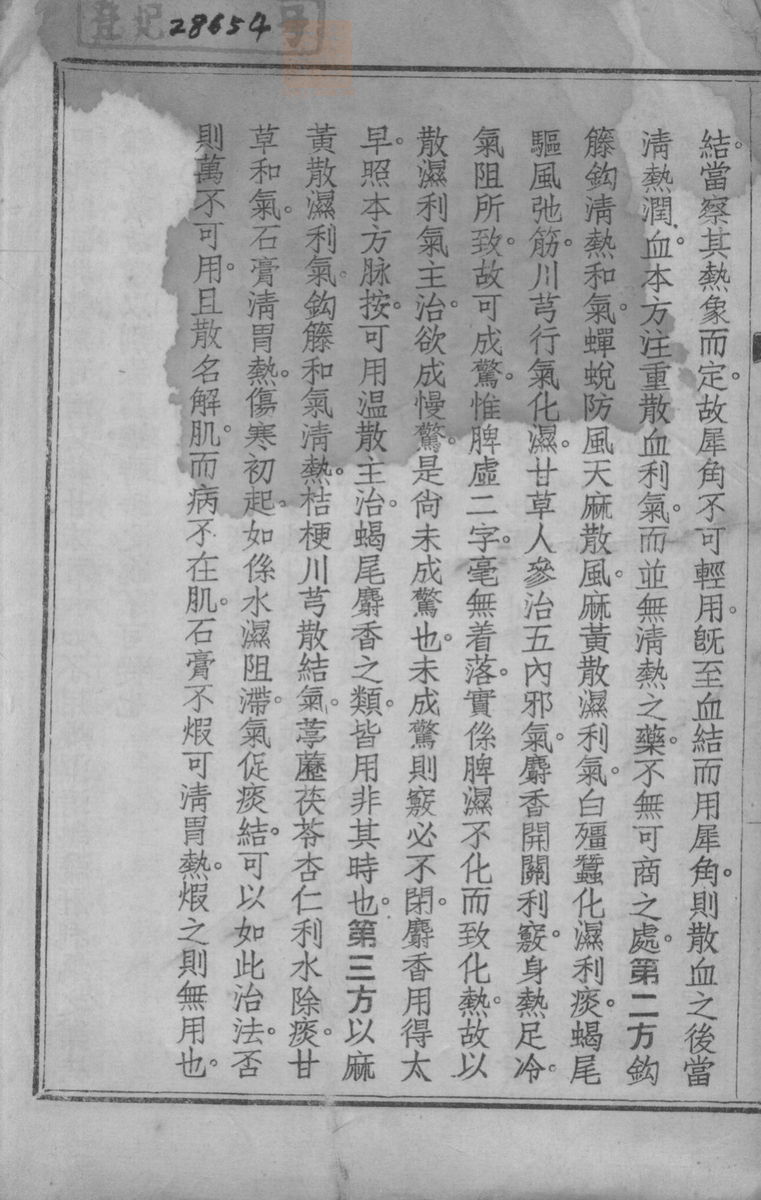 登記 28654 号
結。當察其熱象而定。故犀角不可輕用。旣至血結而用犀角。則散血之後當
淸熱潤血。本方注重散血利氣。而並無淸熱之藥。不無可商之處。第二方鈎
籐鈎淸熱和氣。蟬蛻防風天麻散風。麻黃散濕利氣。白殭蠶化濕利痰。蝎尾
驅風弛筋。川芎行氣化濕。甘草人參治五內邪氣。麝香開關利竅。身熱足冷。
氣阻所致。故可成驚。惟脾虛二字。毫無着落。實係脾濕不化而致化熱。故以
散濕利氣主治。欲成慢驚。是尙未成驚也。未成驚則竅必不閉。麝香用得太
早。照本方脉按。可用温散主治。蝎尾麝香之類。皆用非其時也。第三方以麻
黃散濕利氣。鈎籐和氣淸熱。桔梗川芎散結氣。葶藶茯苓杏仁利水除痰。甘
草和氣。石膏淸胃熱。傷寒初起。如係水濕阻滯。氣促痰結。可以如此治法。否
則萬不可用。且散名解肌。而病不在肌。石膏不煆可淸胃熱。煆之則無用也。